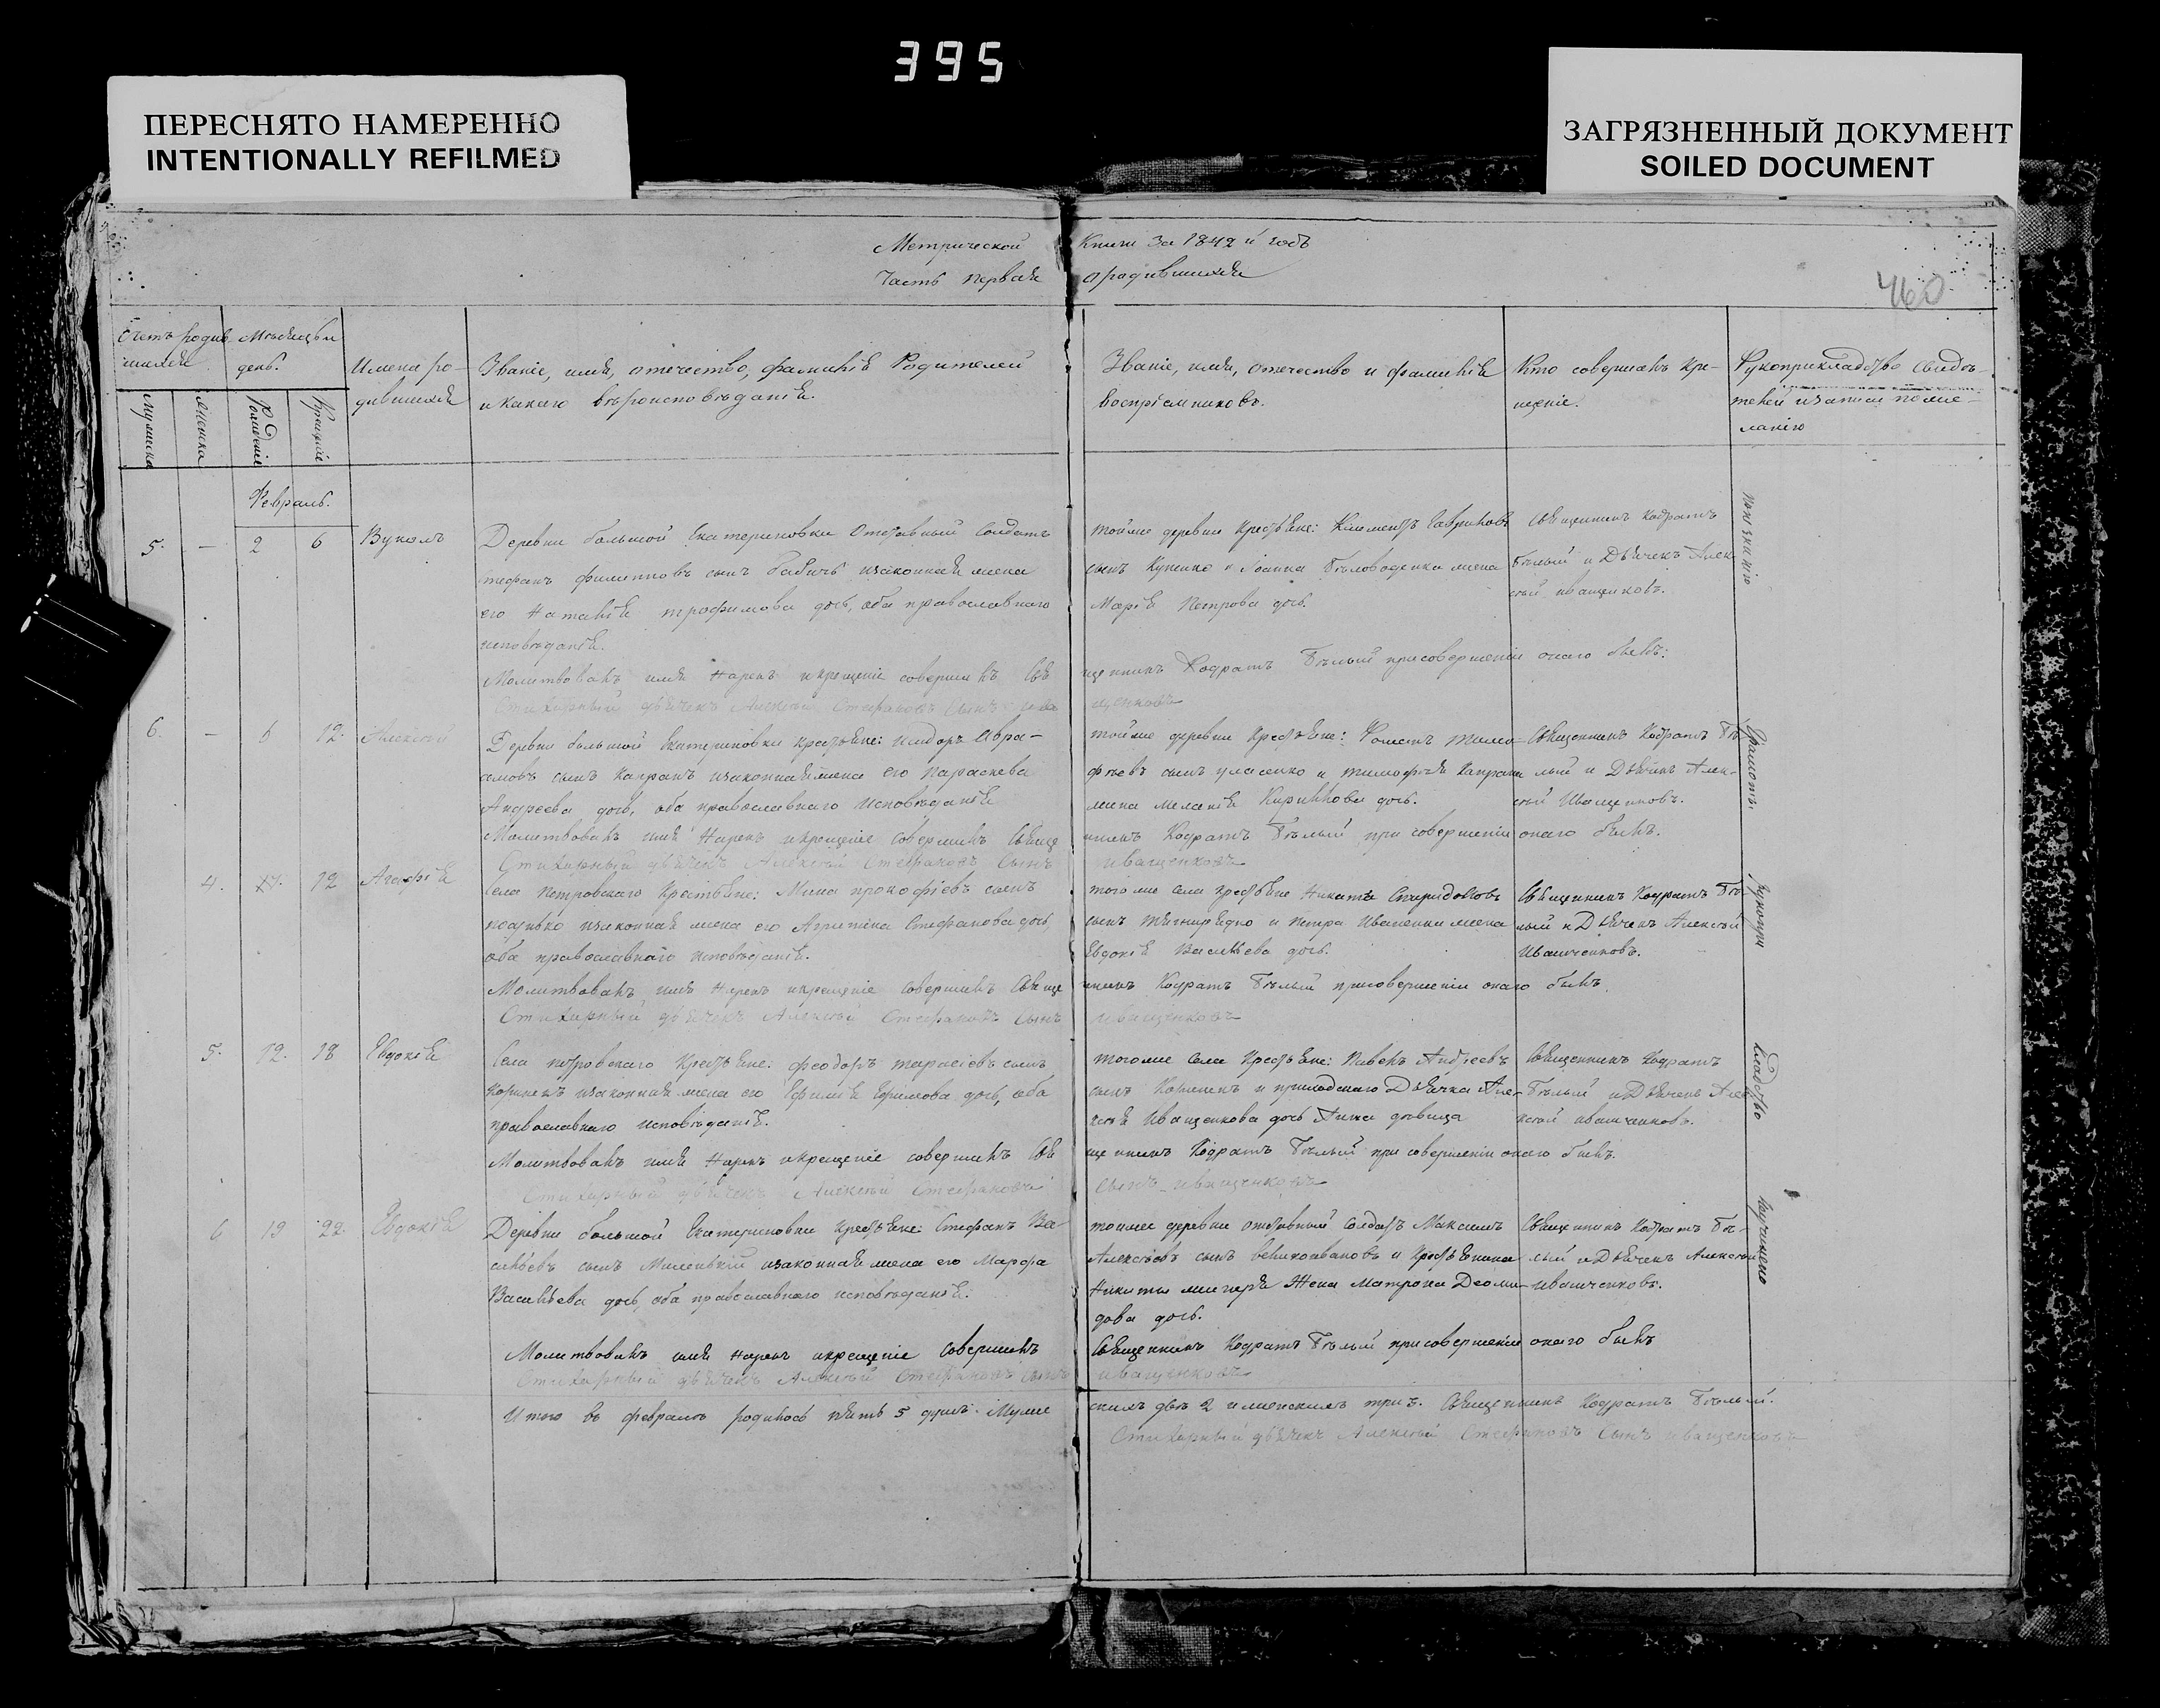 395
ПЕРЕСНЯТО НАМЕРЕННО
INTENTIONALLY REFILMED
ЗАГРЯЗНЕННЫЙ ДОКУМЕНТ
SOILED DOCUMENT
Метрической Книги за 1842 й годъ
Часть первая о родившихся
460
Счетъ родив
шихся
Мѣсяцъ и
день.
Имена ро-
дившихся
Званіе, имя, отечество, фамилія Родителей
и какого вѣроисповѣданія.
Званіе, имя, отечество и фамилія
воспріемниковъ.
Кто совершалъ кре-
щеніе.
Рукоприкладство свидѣ-
телей
ланію
Мужеска
Женска
Рожденіе
Крещеніе
Февраль.
5. — 2 6 Вуколъ
Деревни большой Екатериновки Отставный Солдатъ
Стефанъ Филипповъ сынъ Бабичъ и законная жена
его Наталія Трофимова дочь, оба православнаго
исповѣданія.
тойже деревни Крестьяне: Климентъ Гавриловъ
сынъ Куценко и Іоанна Бѣловоденка жена
Марія Петрова дочь.
Священникъ Кодратъ
Бѣлый и Дьячекъ Алек
сѣй Иващенковъ.
Молитвовалъ имя Нарекъ и крещеніе совершилъ Свя
щенникъ Кодратъ Бѣлый при совершеніи онаго былъ:
Стихарный дьячекъ Алексѣй Стефановъ Сынъ Ива
щенковъ
6. — 6 12. Алексѣй
Деревни большой Екатериновки крестьяне: Исидоръ Авра-
амовъ сынъ Капранъ и законная жена его Параскева
Андреева дочь, оба православнаго Исповѣданія
тойже деревни Крестьяне: Тимо-
фѣевъ сынъ Уласенко и Тимофея Капрана
жена Меланія Кирилова дочь.
Священникъ Кодратъ Бѣ
лый и Дьячекъ Алек-
сѣй Иващенковъ.
Молитвовалъ имя Нарекъ и крещеніе совершилъ Свяще
нникъ Кодратъ Бѣлый при совершеніи онаго былъ.
Стихарный дьячекъ Алексѣй Стефановъ Сынъ
Иващенковъ
4. 12 Агафія
Села Петровскаго Крестьяне: Мина Прокофіевъ сынъ
и законная жена его Агрипина Стефанова дочь
оба православнаго исповѣданія.
того же села крестьяне Никита Спиридоновъ
сынъ и Петра Иваненка жена
Евдокія Васильева дочь.
Священникъ Кодратъ Бѣ
лый и Дьячекъ Алексѣй
Иващенковъ.
Молитвовалъ, имя Нарекъ и крещеніе совершилъ Свяще
нникъ Кодратъ Бѣлый при совершеніи онаго былъ.
Стихарный дьячекъ Алексѣй Стефановъ Сынъ
Иващенковъ
5. 12. 18 Евдокія
Села Петровскаго Крестьяне: Феодоръ Тарасіевъ сынъ
и законная жена его Ефимія Ефимова дочь, оба
православнаго исповѣданія.
того же села Крестьяне: Павелъ Андреевъ
сынъ и приходскаго Дьячка Але-
ксѣя Иващенкова дочь Анна дѣвица
Священникъ Кодратъ
Бѣлый и Дьячекъ Але
ксѣй Иващенковъ.
Молитвовалъ имя Нарекъ и крещеніе совершилъ Свя
щенникъ Кодратъ Бѣлый при совершеніи онаго былъ.
Стихарный дьячекъ Алексѣй Стефановъ
Сынъ Иващенковъ
6 19 22 Евдокія
Деревни большой Екатериновки крестьяне: Стефанъ Ва-
сильевъ сынъ и законная жена его Марфа
Васильева дочь, оба православнаго исповѣданія.
тойже деревни отставный солдатъ Максимъ
Алексѣевъ сынъ Великоивановъ и крестьянина
Никиты Жена Матрона Деоми-
дова дочь.
Священникъ Кодратъ Бѣ-
лый и Дьячекъ Алексѣй
Иващенковъ.
Молитвовалъ имя Нарекъ и крещеніе совершилъ
Священникъ Кодратъ Бѣлый при совершеніи онаго былъ
Стихарный дьячекъ Алексѣй Стефановъ Сынъ
Иващенковъ
Итого въ февралѣ родилось пять 5 душъ. Муже
скихъ двѣ 2 и женскихъ три 3. Священникъ Кодратъ Бѣлый.
Стихарный дьячекъ Алексѣй Стефановъ Сынъ Иващенковъ
По незнанію
Грамотѣ,
рукопри
кладство
неучинено